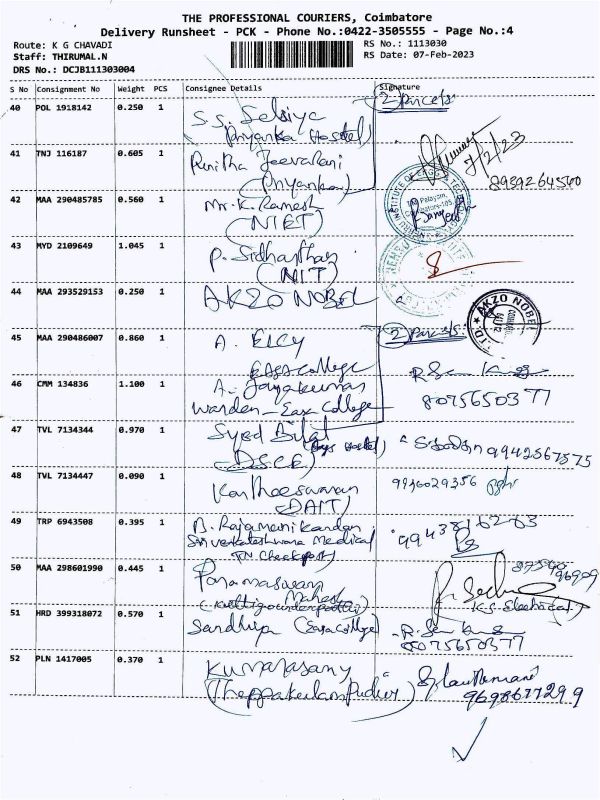 THE PROFESSIONAL COURIERS, Coimbatore
Delivery Runsheet - PCK - Phone No.:0422-3505555 - Page No.:4
Route: K G CHAVADI
RS No.: 1113030
Staff: THIRUMAL.N
RS Date: 07-Feb-2023
DRS No.: DCJB111303004
S No Consignment No Weight PCS Consignee Details Signature
40 POL 1918142 0.250 1 S.S. Selsiya 2 Parcels
(Priyanka Hostel)
41 TNJ 116187 0.605 1 Punitha Jeevarani 7/2/23
(Priyanka) 8939264540
42 MAA 290485785 0.560 1 Mr. K. Ramesh
(NIET)
43 MYD 2109649 1.045 1 P. Sidharthan
(NIT)
44 MAA 293529153 0.250 1 AKZO NOBEL AKZO NOBEL
45 MAA 290486007 0.860 1 A. ELCY 2 Parcels
EASA College
46 CMM 134836 1.100 1 A. Jayakumar
Warden - Easa College 8075650377
47 TVL 7134344 0.970 1 Syed Bilal 9942567575
(DSCE) (Boys Hostel)
48 TVL 7134447 0.090 1 Kartheeswaran 9936029356
(DAIT)
49 TRP 6943508 0.395 1 B. Rajamanikandan
Sri Venkateshwara Medical
(TN Checkpost)
50 MAA 298601990 0.445 1
51 HRD 399318072 0.570 1 Sandhiya (Easa College)
8075650377
52 PLN 1417005 0.370 1 Kumarasamy
9698677299